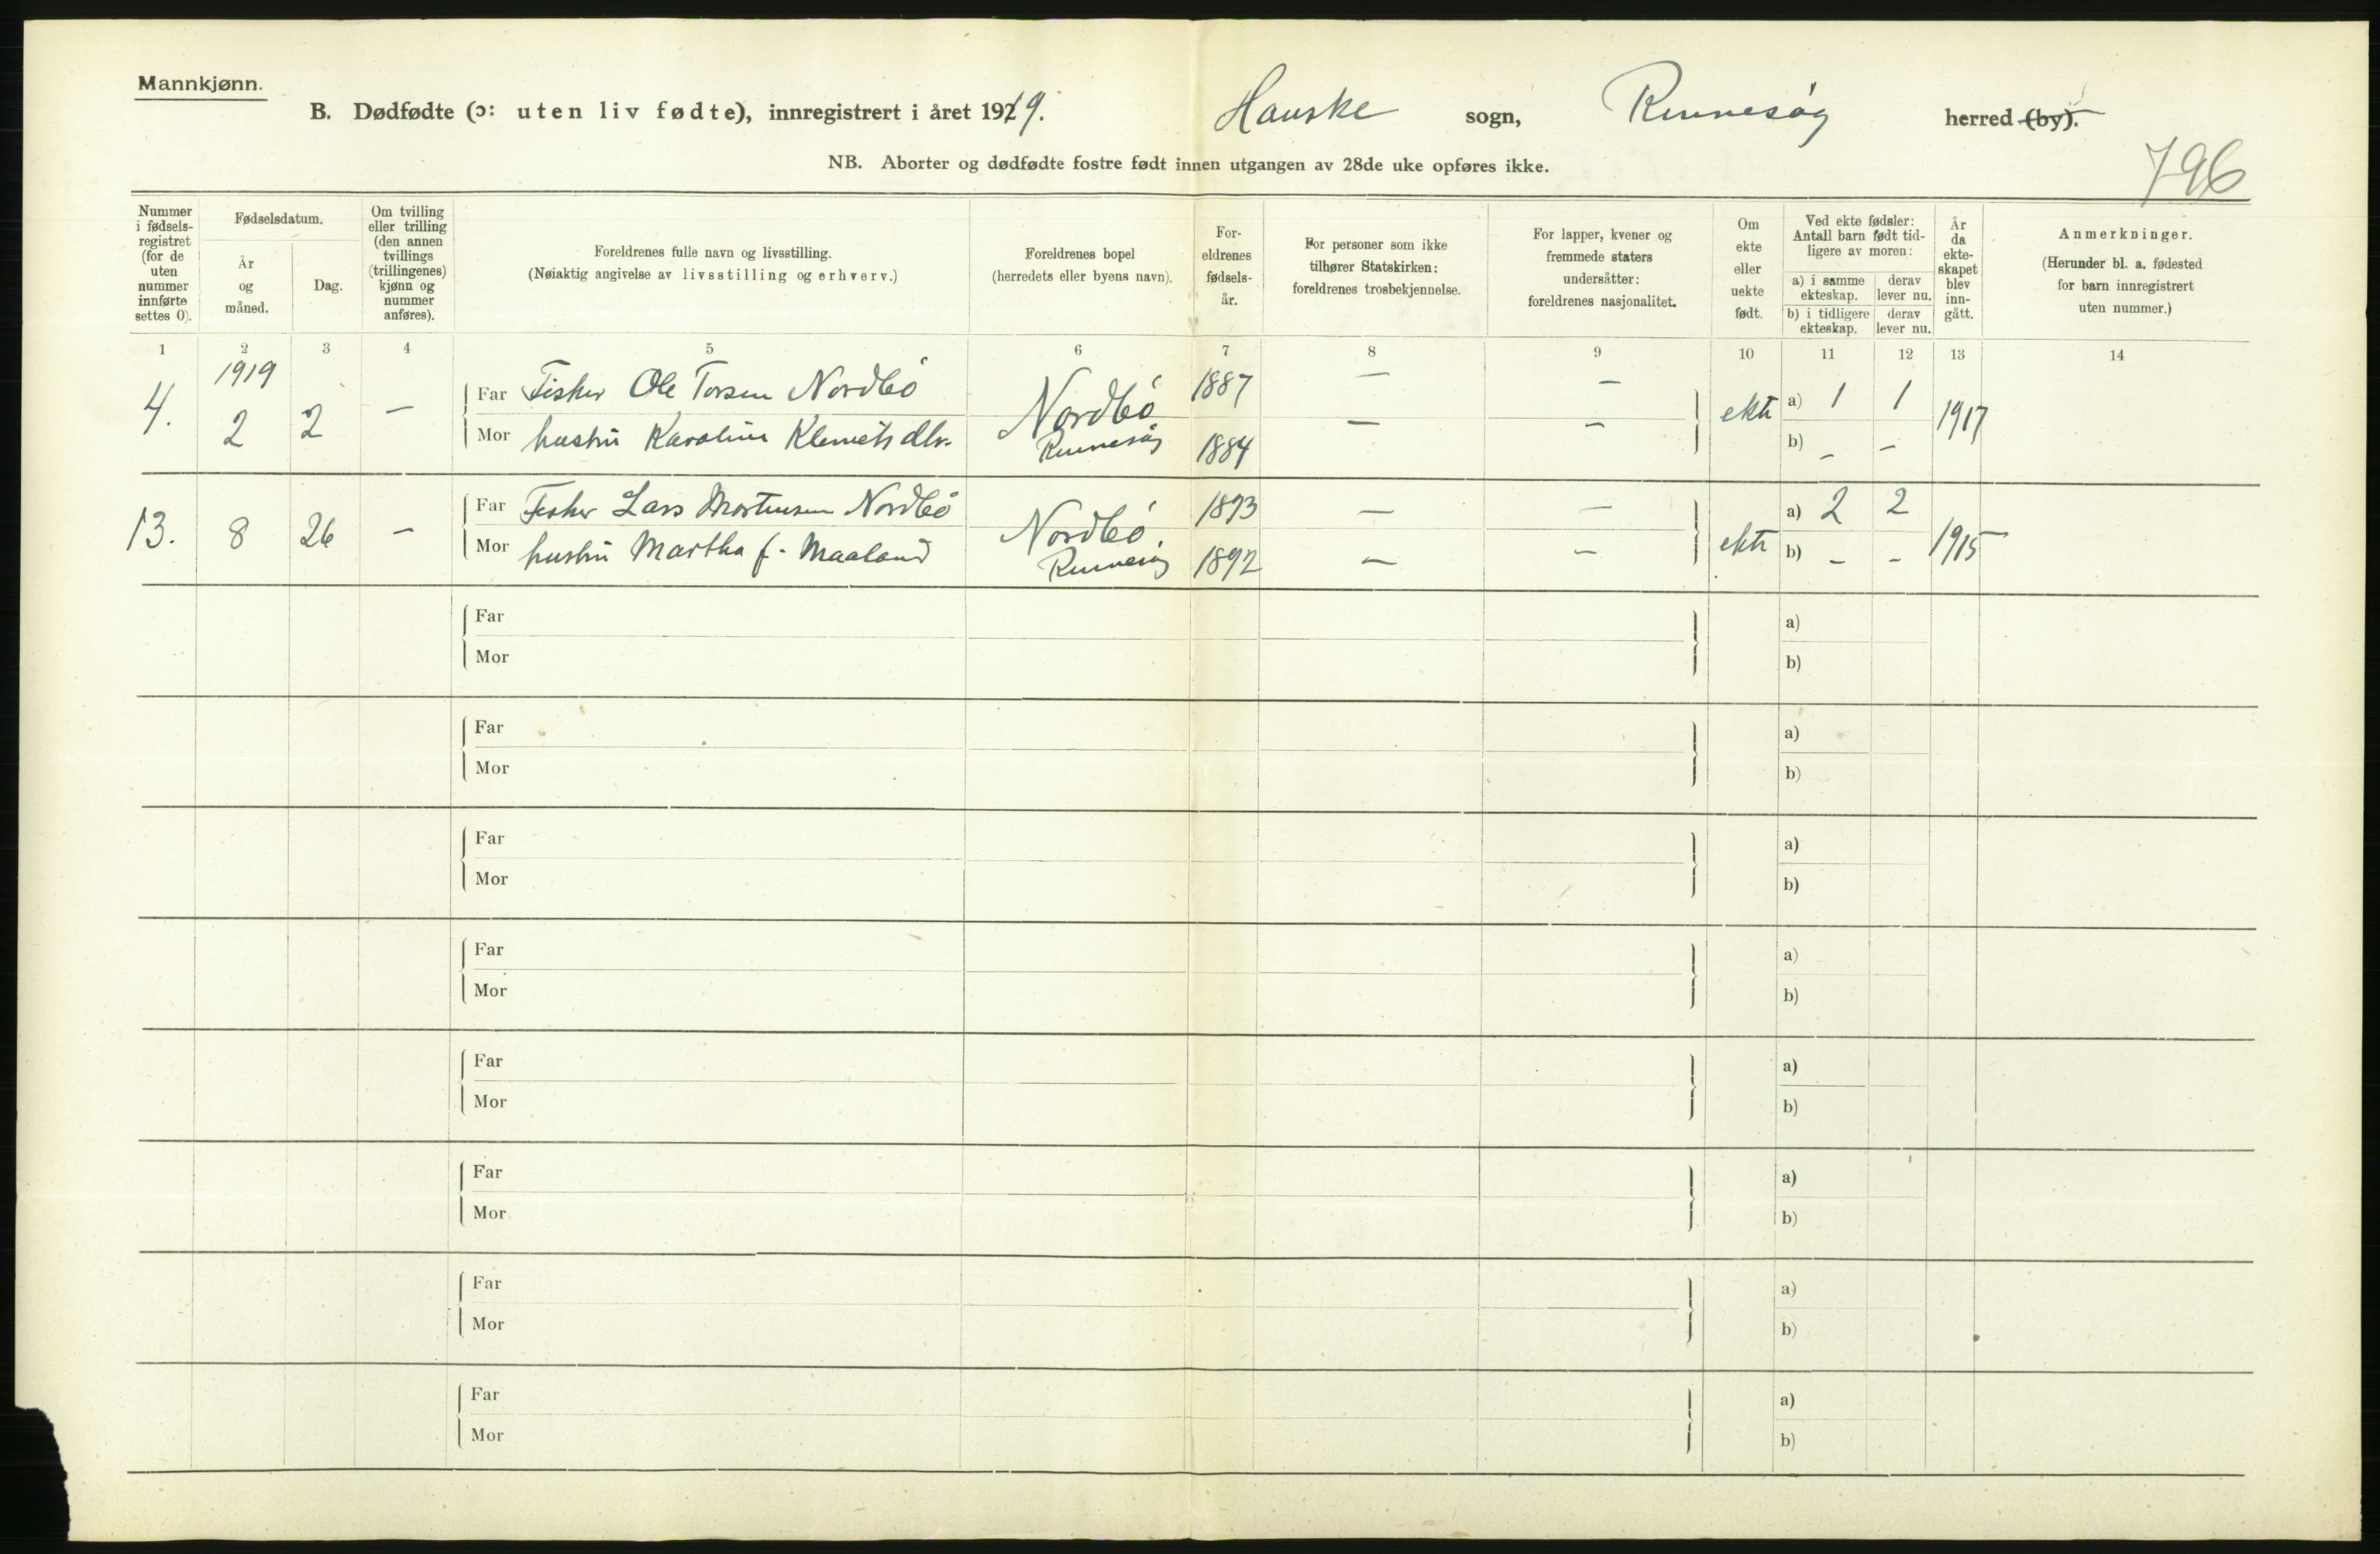 Mannkjønn.
B. Dødfødte (ɔ: uten liv fødte), innregistrert i året 1919. Hauske sogn, Rennesøy herred (by).
796
NB. Aborter og dødfødte fostre født innen utgangen av 28de uke opføres ikke.
Nummer i fødsels-registret (for de uten nummer innførte settes 0).
Fødselsdatum.
År og måned.
Dag.
Om tvilling eller trilling (den annen tvillings (trillingenes) kjønn og nummer anføres).
Foreldrenes fulle navn og livsstilling.
(Nøiaktig angivelse av livsstilling og erhverv.)
Foreldrenes bopel
(herredets eller byens navn).
For-eldrenes fødsels-år.
For personer som ikke tilhører Statskirken: foreldrenes trosbekjennelse.
For lapper, kvener og fremmede staters undersåtter: foreldrenes nasjonalitet.
Om ekte eller uekte født.
Ved ekte fødsler: Antall barn født tid-ligere av moren:
a) i samme ekteskap. derav lever nu.
b) i tidligere ekteskap. derav lever nu.
År da ekte-skapet blev inn-gått.
Anmerkninger.
(Herunder bl. a. fødested for barn innregistrert uten nummer.)
1 2 3 4 5 6 7 8 9 10 11 12 13 14
1919
4. 2 2 — Far Fisker Ole Torsen Nordbö Nordbö 1887 — — ekte a) 1 1 1917
Mor hustru Karoline Klemets dtr. Rennesöy 1884 — — b) – –
13. 8 26 – Far Fisker Lars Mortensen Nordbö Nordbö 1893 — — ekte a) 2 2 1915
Mor hustru Martha f. Maaland Rennesöy 1892 — – b) – –
Far a)
Mor b)
Far a)
Mor b)
Far a)
Mor b)
Far a)
Mor b)
Far a)
Mor b)
Far a)
Mor b)
Far a)
Mor b)
Far a)
Mor b)